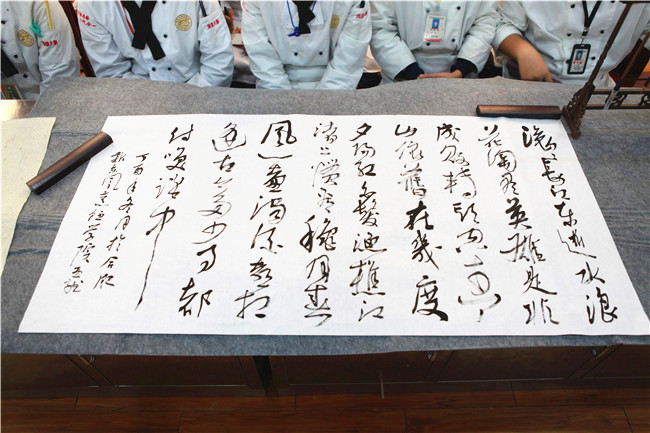 滚滚長江东逝水浪
花淘尽英雄是非
成敗转头空青
山依舊在幾度
夕阳红白髮渔樵江
渚上惯看秋月春
风一壶浊酒喜相
逢古今多少事都
付笑谈中
丁酉年冬月於合肥